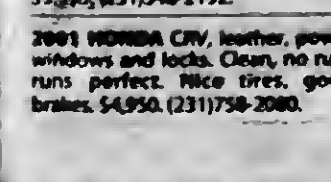 2001 HONDA CRV, leather, pow
windows and locks. Clean, no ru
runs perfect. Nice tires, go
brakes. $4,950. (231)758-2080.